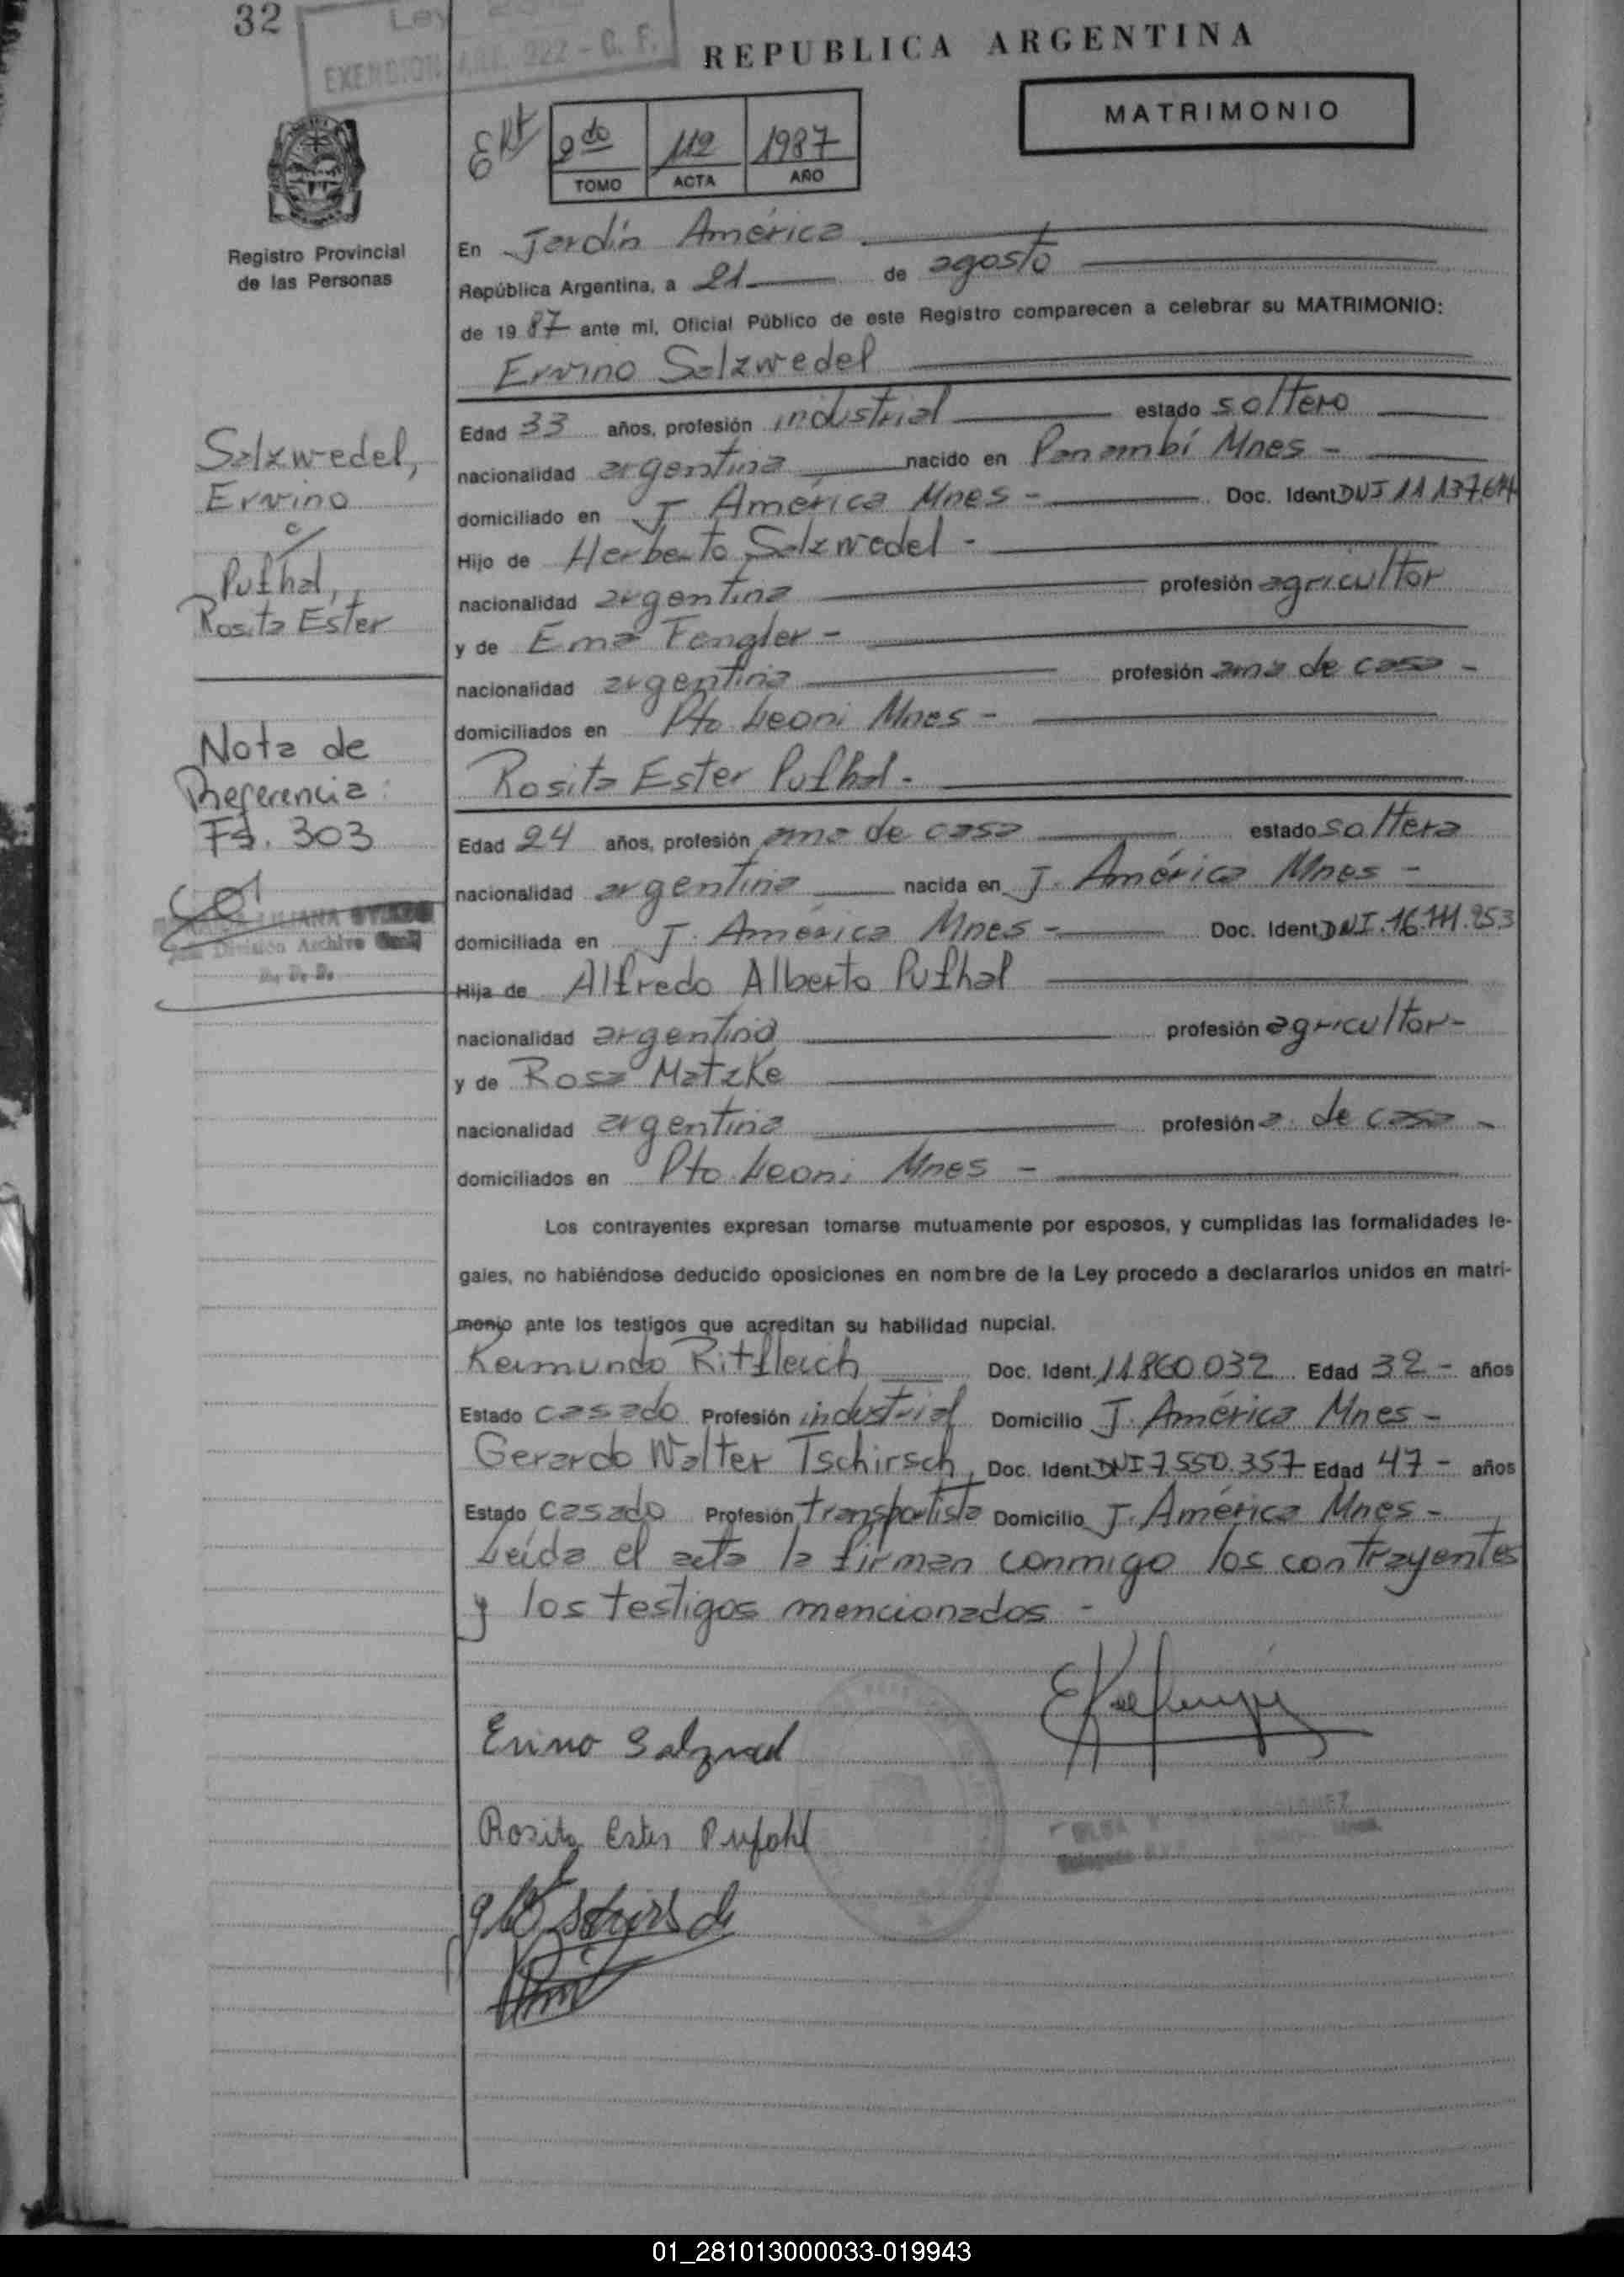 32
Ley
EXENCION ART. 222 - C. F.
REPUBLICA ARGENTINA
MATRIMONIO
2do 112 1987
TOMO ACTA AÑO
Registro Provincial
de las Personas
En Jardín América
República Argentina, a 21 de agosto
de 1987 ante mí, Oficial Público de este Registro comparecen a celebrar su MATRIMONIO:
Ervino Salzwedel
Edad 33 años, profesión industrial estado soltero
nacionalidad argentina nacido en Panambí Mnes -
domiciliado en J. América Mnes - Doc. Ident DNI 11 137.614
Hijo de Herberto Salzwedel -
nacionalidad argentina profesión agricultor
y de Ema Fengler -
nacionalidad argentina profesión ama de casa -
domiciliados en Pto Leoni Mnes -
Rosita Ester Pufhal -
Edad 24 años, profesión ama de casa estado soltera
nacionalidad argentina nacida en J. América Mnes -
domiciliada en J. América Mnes - Doc. Ident. DNI.16.711.253
Hija de Alfredo Alberto Pufhal
nacionalidad argentina profesión agricultor -
y de Rosa Matzke
nacionalidad argentina profesión a. de casa -
domiciliados en Pto Leoni Mnes -
Los contrayentes expresan tomarse mutuamente por esposos, y cumplidas las formalidades le-
gales, no habiéndose deducido oposiciones en nombre de la Ley procedo a declararlos unidos en matri-
monio ante los testigos que acreditan su habilidad nupcial.
Reimundo Ritfleich Doc. Ident. 11.860.032 Edad 32 - años
Estado casado Profesión industrial Domicilio J. América Mnes -
Gerardo Walter Tschirsch, Doc. Ident DNI 7.550.357 Edad 47 - años
Estado casado Profesión transportista Domicilio J. América Mnes -
Leída el acta la firman conmigo los contrayentes
y los testigos mencionados -
Salzwedel,
Ervino
c/
Pufhal,
Rosita Ester
Nota de
Referencia:
Fs. 303
LILIANA
División Archivo
Rosita Ester Pufahl
01_281013000033-019943